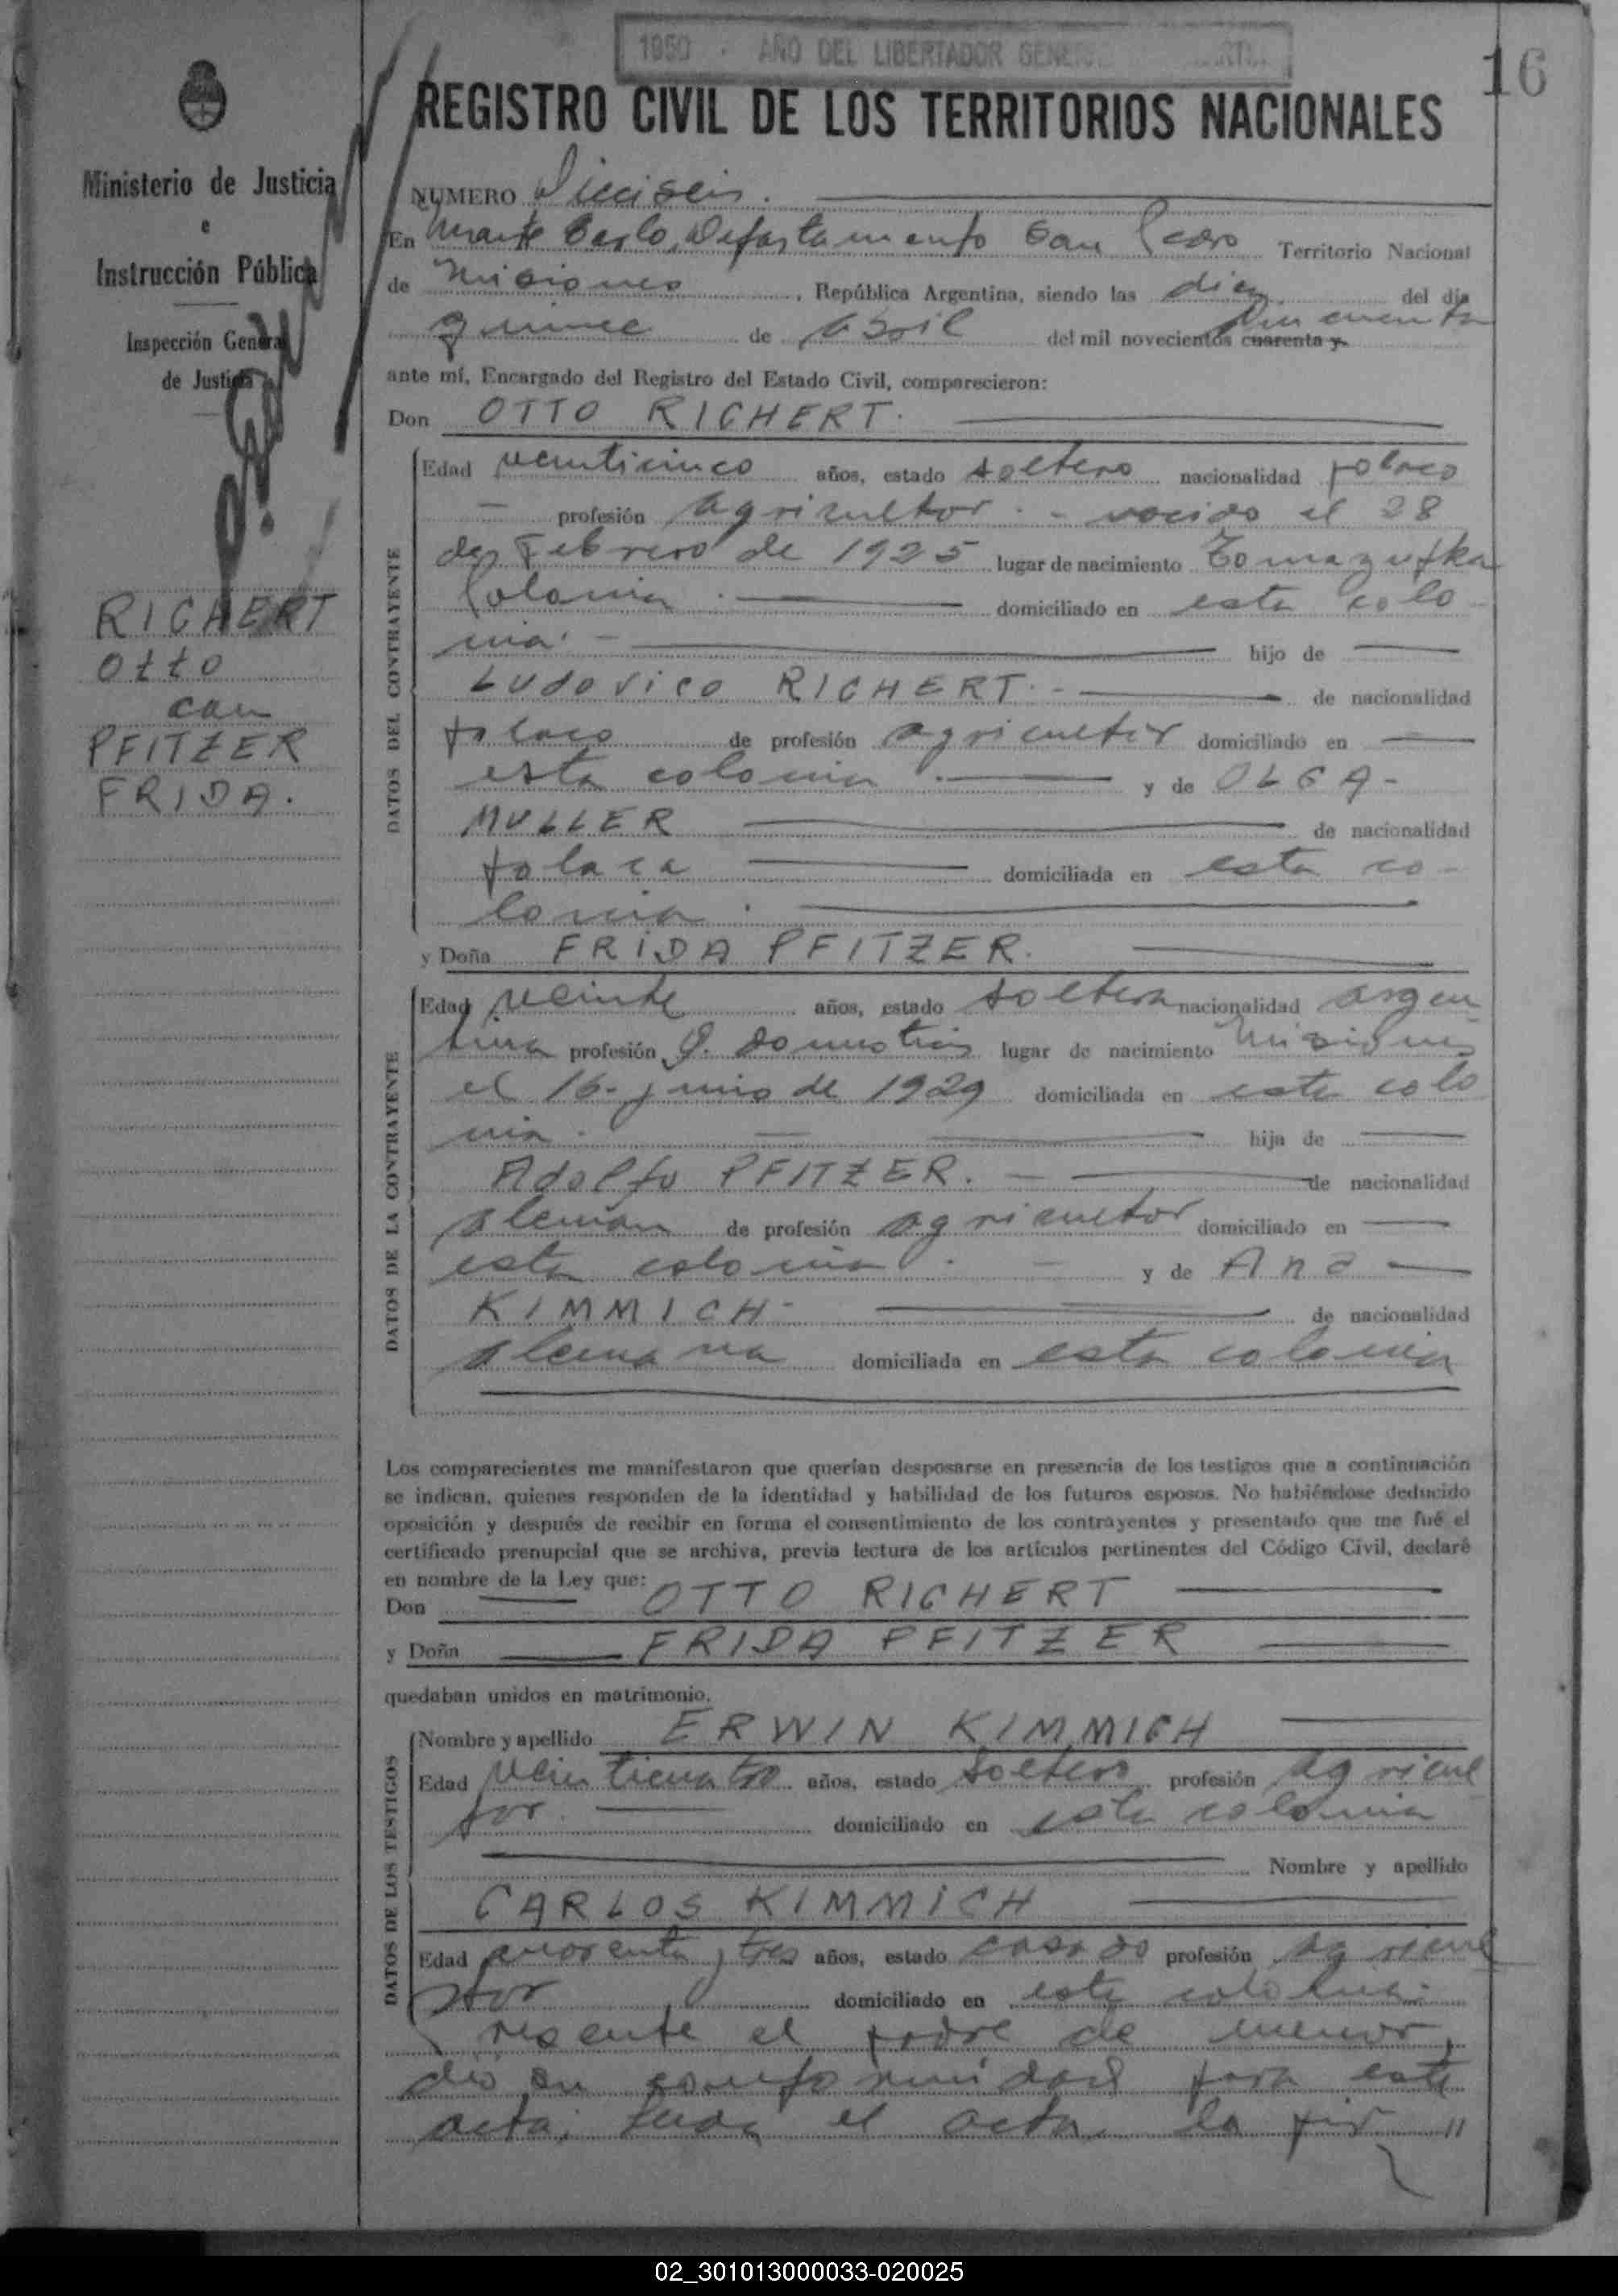 1950 - AÑO DEL LIBERTADOR GENERAL
16
REGISTRO CIVIL DE LOS TERRITORIOS NACIONALES
Ministerio de Justicia
e
Instrucción Pública
Inspección General
de Justicia
RICHERT
Otto
con
PFITZER
FRIDA.
NUMERO Dieciseis.
En Monte Carlo, Departamento San Pedro Territorio Nacional
de Misiones, República Argentina, siendo las diez del día
quince de Abril del mil novecientos cuarenta y cincuenta
ante mí, Encargado del Registro del Estado Civil, comparecieron:
Don OTTO RICHERT.
DATOS DEL CONTRAYENTE
Edad veinticinco años, estado soltero nacionalidad polaco
profesión agricultor - nacido el 28
de Febrero de 1925 lugar de nacimiento
Polonia. domiciliado en esta colo
nia. - hijo de
Ludovico RICHERT. - de nacionalidad
polaco de profesión agricultor domiciliado en
esta colonia. y de OLGA -
MULLER de nacionalidad
polaca domiciliada en esta co-
lonia.
y Doña FRIDA PFITZER.
DATOS DE LA CONTRAYENTE
Edad veinte años, estado soltera nacionalidad argen
tina profesión Q. domesticos lugar de nacimiento Misiones
el 16 - junio de 1929 domiciliada en esta colo
nia. hija de
Adolfo PFITZER. - de nacionalidad
aleman de profesión agricultor domiciliado en
esta colonia. y de Ana
KIMMICH - de nacionalidad
alemana domiciliada en esta colonia
Los comparecientes me manifestaron que querían desposarse en presencia de los testigos que a continuación
se indican, quienes responden de la identidad y habilidad de los futuros esposos. No habiéndose deducido
oposición y después de recibir en forma el consentimiento de los contrayentes y presentado que me fué el
certificado prenupcial que se archiva, previa lectura de los artículos pertinentes del Código Civil, declaré
en nombre de la Ley que:
Don OTTO RICHERT
y Doña FRIDA PFITZER
quedaban unidos en matrimonio.
DATOS DE LOS TESTIGOS
Nombre y apellido ERWIN KIMMICH
Edad veinticuatro años, estado soltero profesión agricul
tor domiciliado en esta colonia
Nombre y apellido
CARLOS KIMMICH
Edad cuarenta y tres años, estado casado profesión agricul
tor domiciliado en esta colonia.
Presente el padre de menor,
dió su conformidad para este
acta; leida el acta, la fir "
02_301013000033-020025